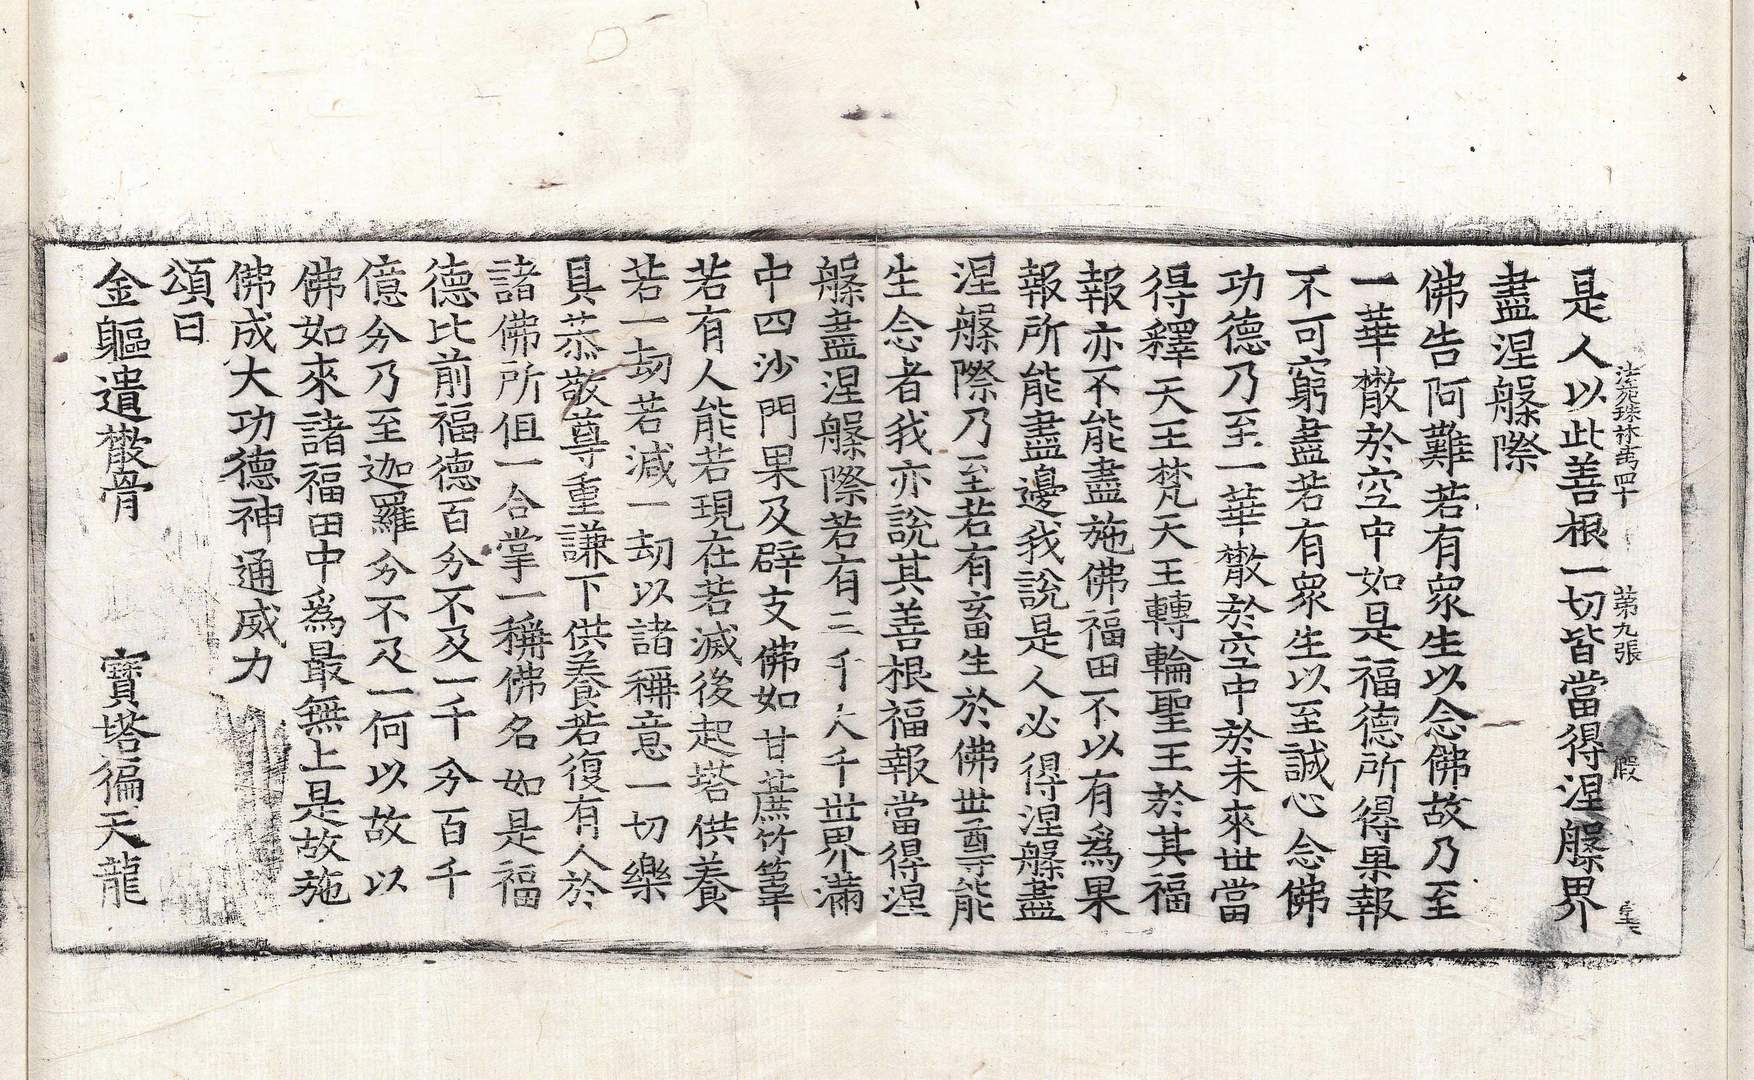 法苑珠林卷四十　第九張　假
是人以此善根一切皆當得涅槃界
盡涅槃際
佛告阿難若有衆生以念佛故乃至
一華散於空中如是福德所得果報
不可窮盡若有衆生以至誠心念佛
功德乃至一華散於空中於未來世當
得釋天王梵天王轉輪聖王於其福
報亦不能盡施佛福田不以有爲果
報所能盡邊我說是人必得涅槃盡
涅槃際乃至若有畜生於佛世尊能
生念者我亦說其善根福報當得涅
槃盡涅槃際若有三千大千世界滿
中四沙門果及辟支佛如甘蔗竹䔧
若有人能若現在若滅後起塔供養
若一劫若減一劫以諸稱意一切樂
具恭敬尊重謙下供養若復有人於
諸佛所但一合掌一稱佛名如是福
德比前福德百分不及一千分百千
億分乃至迦羅分不及一何以故以
佛如來諸福田中爲最無上是故施
佛成大功德神通威力
頌曰
金軀遺散骨　寶塔徧天龍